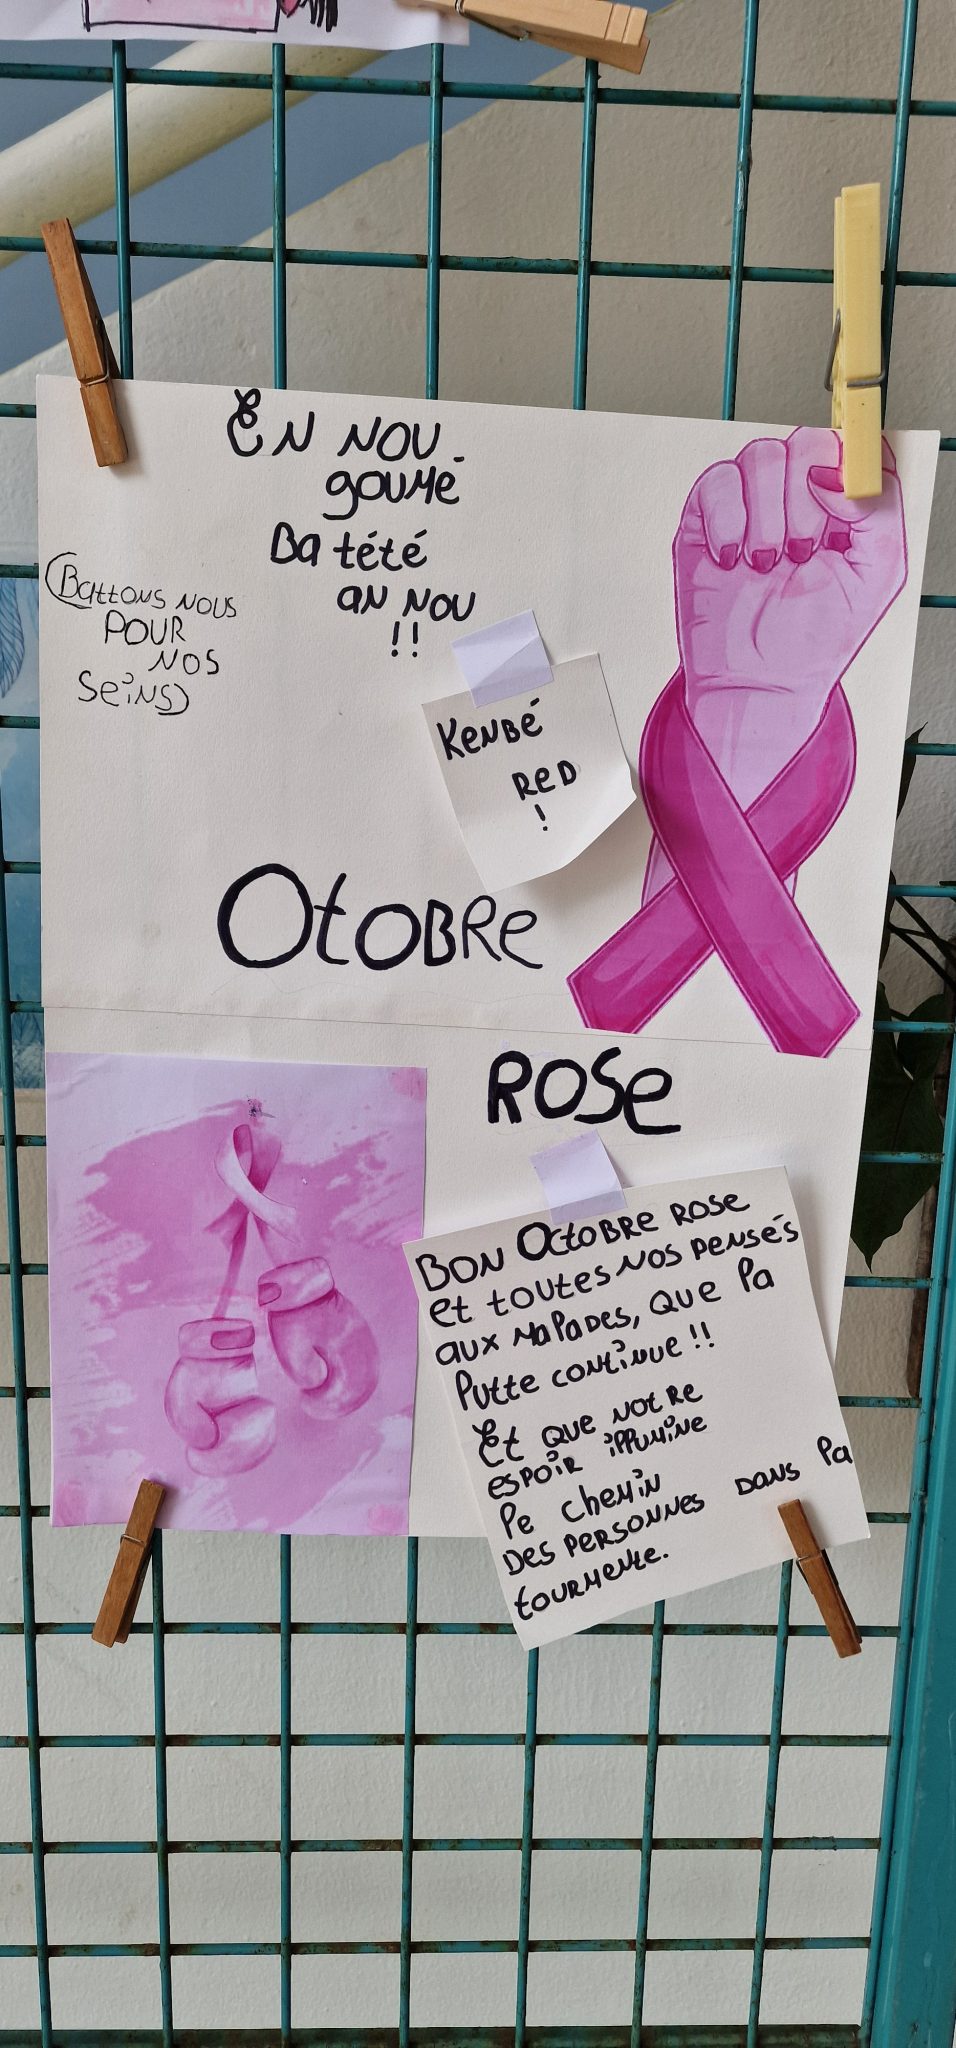 En nou
goumé
Ba tété
an nou
!!
(Battons nous
pour
nos
seins)
Kenbé
red
!
Otobre
Rose
Bon Octobre rose
et toutes nos pensés
aux malades, que la
lutte continue !!
Et que notre
espoir illumine
le chemin
des personnes dans la
tourmente.